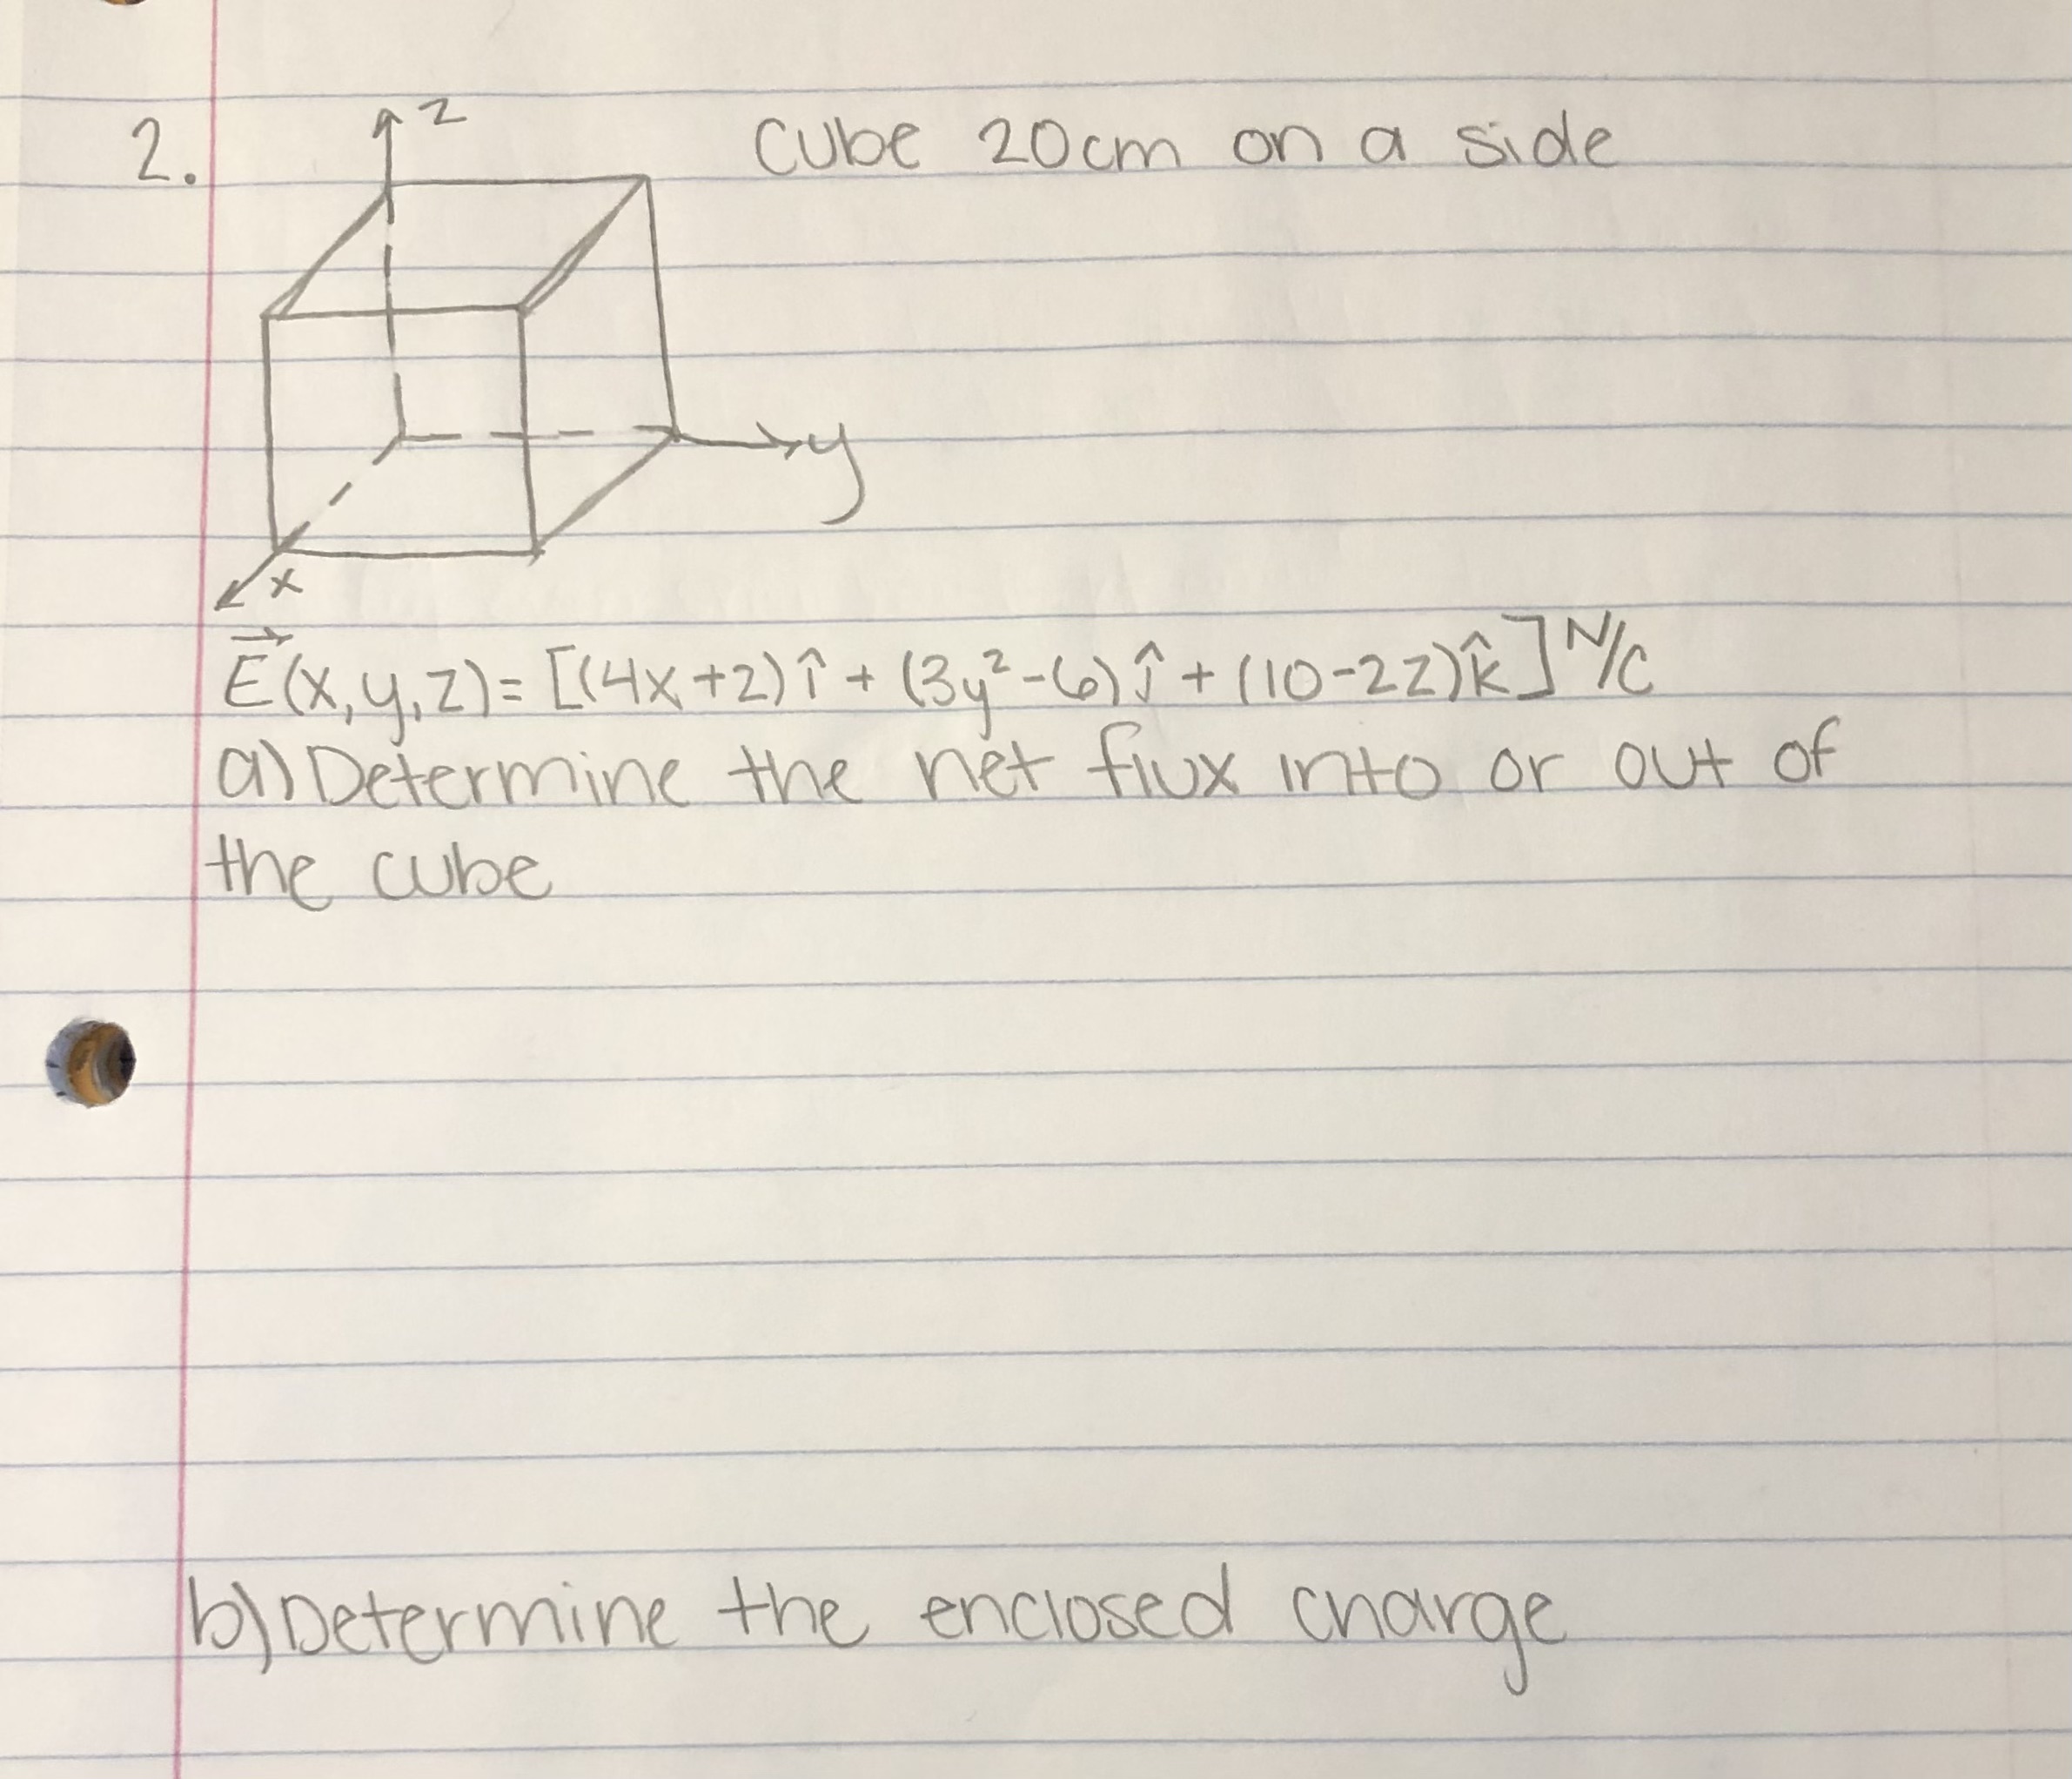 2.
z
cube 20cm on a side
y
x
E⃗(x,y,z)= [(4x+2)î + (3y²-6)ĵ + (10-2z)k̂] N/C
a) Determine the net flux into or out of
the cube
b) Determine the enclosed charge